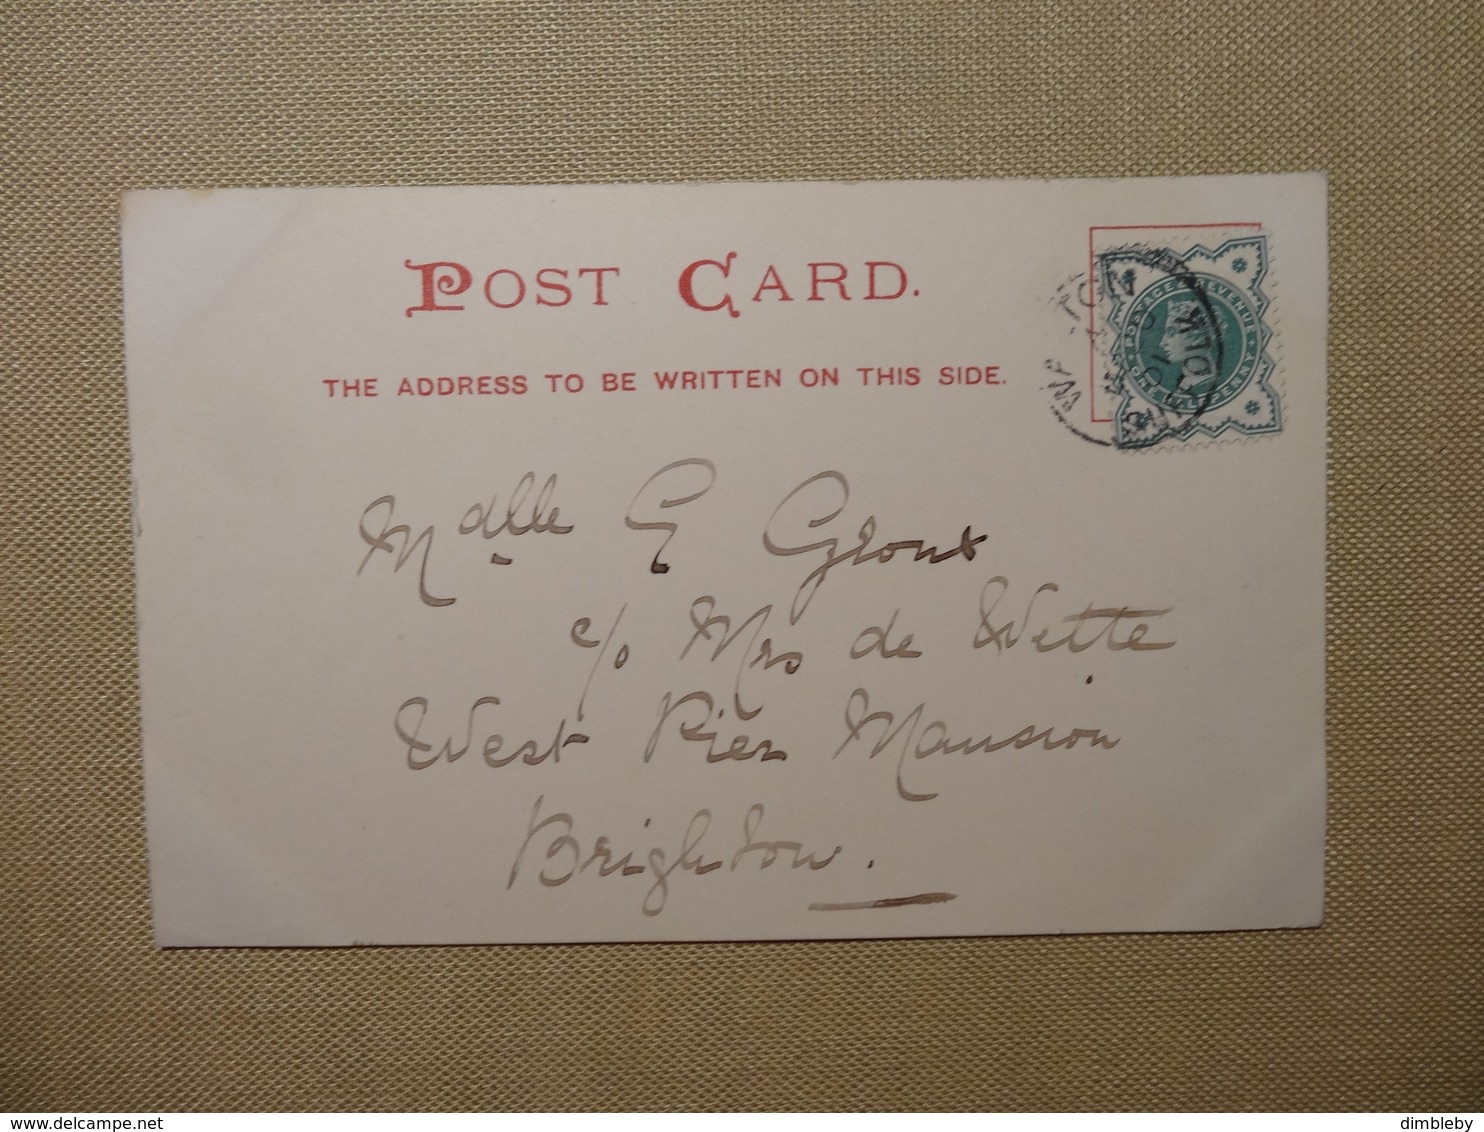 POST CARD.
THE ADDRESS TO BE WRITTEN ON THIS SIDE.
POSTAGE & REVENUE
ONE HALFPENNY
Mdlle G Gront
c/o Mrs de Wette
West Pier Mansion
Brighton.
delcampe.net
dimbleby